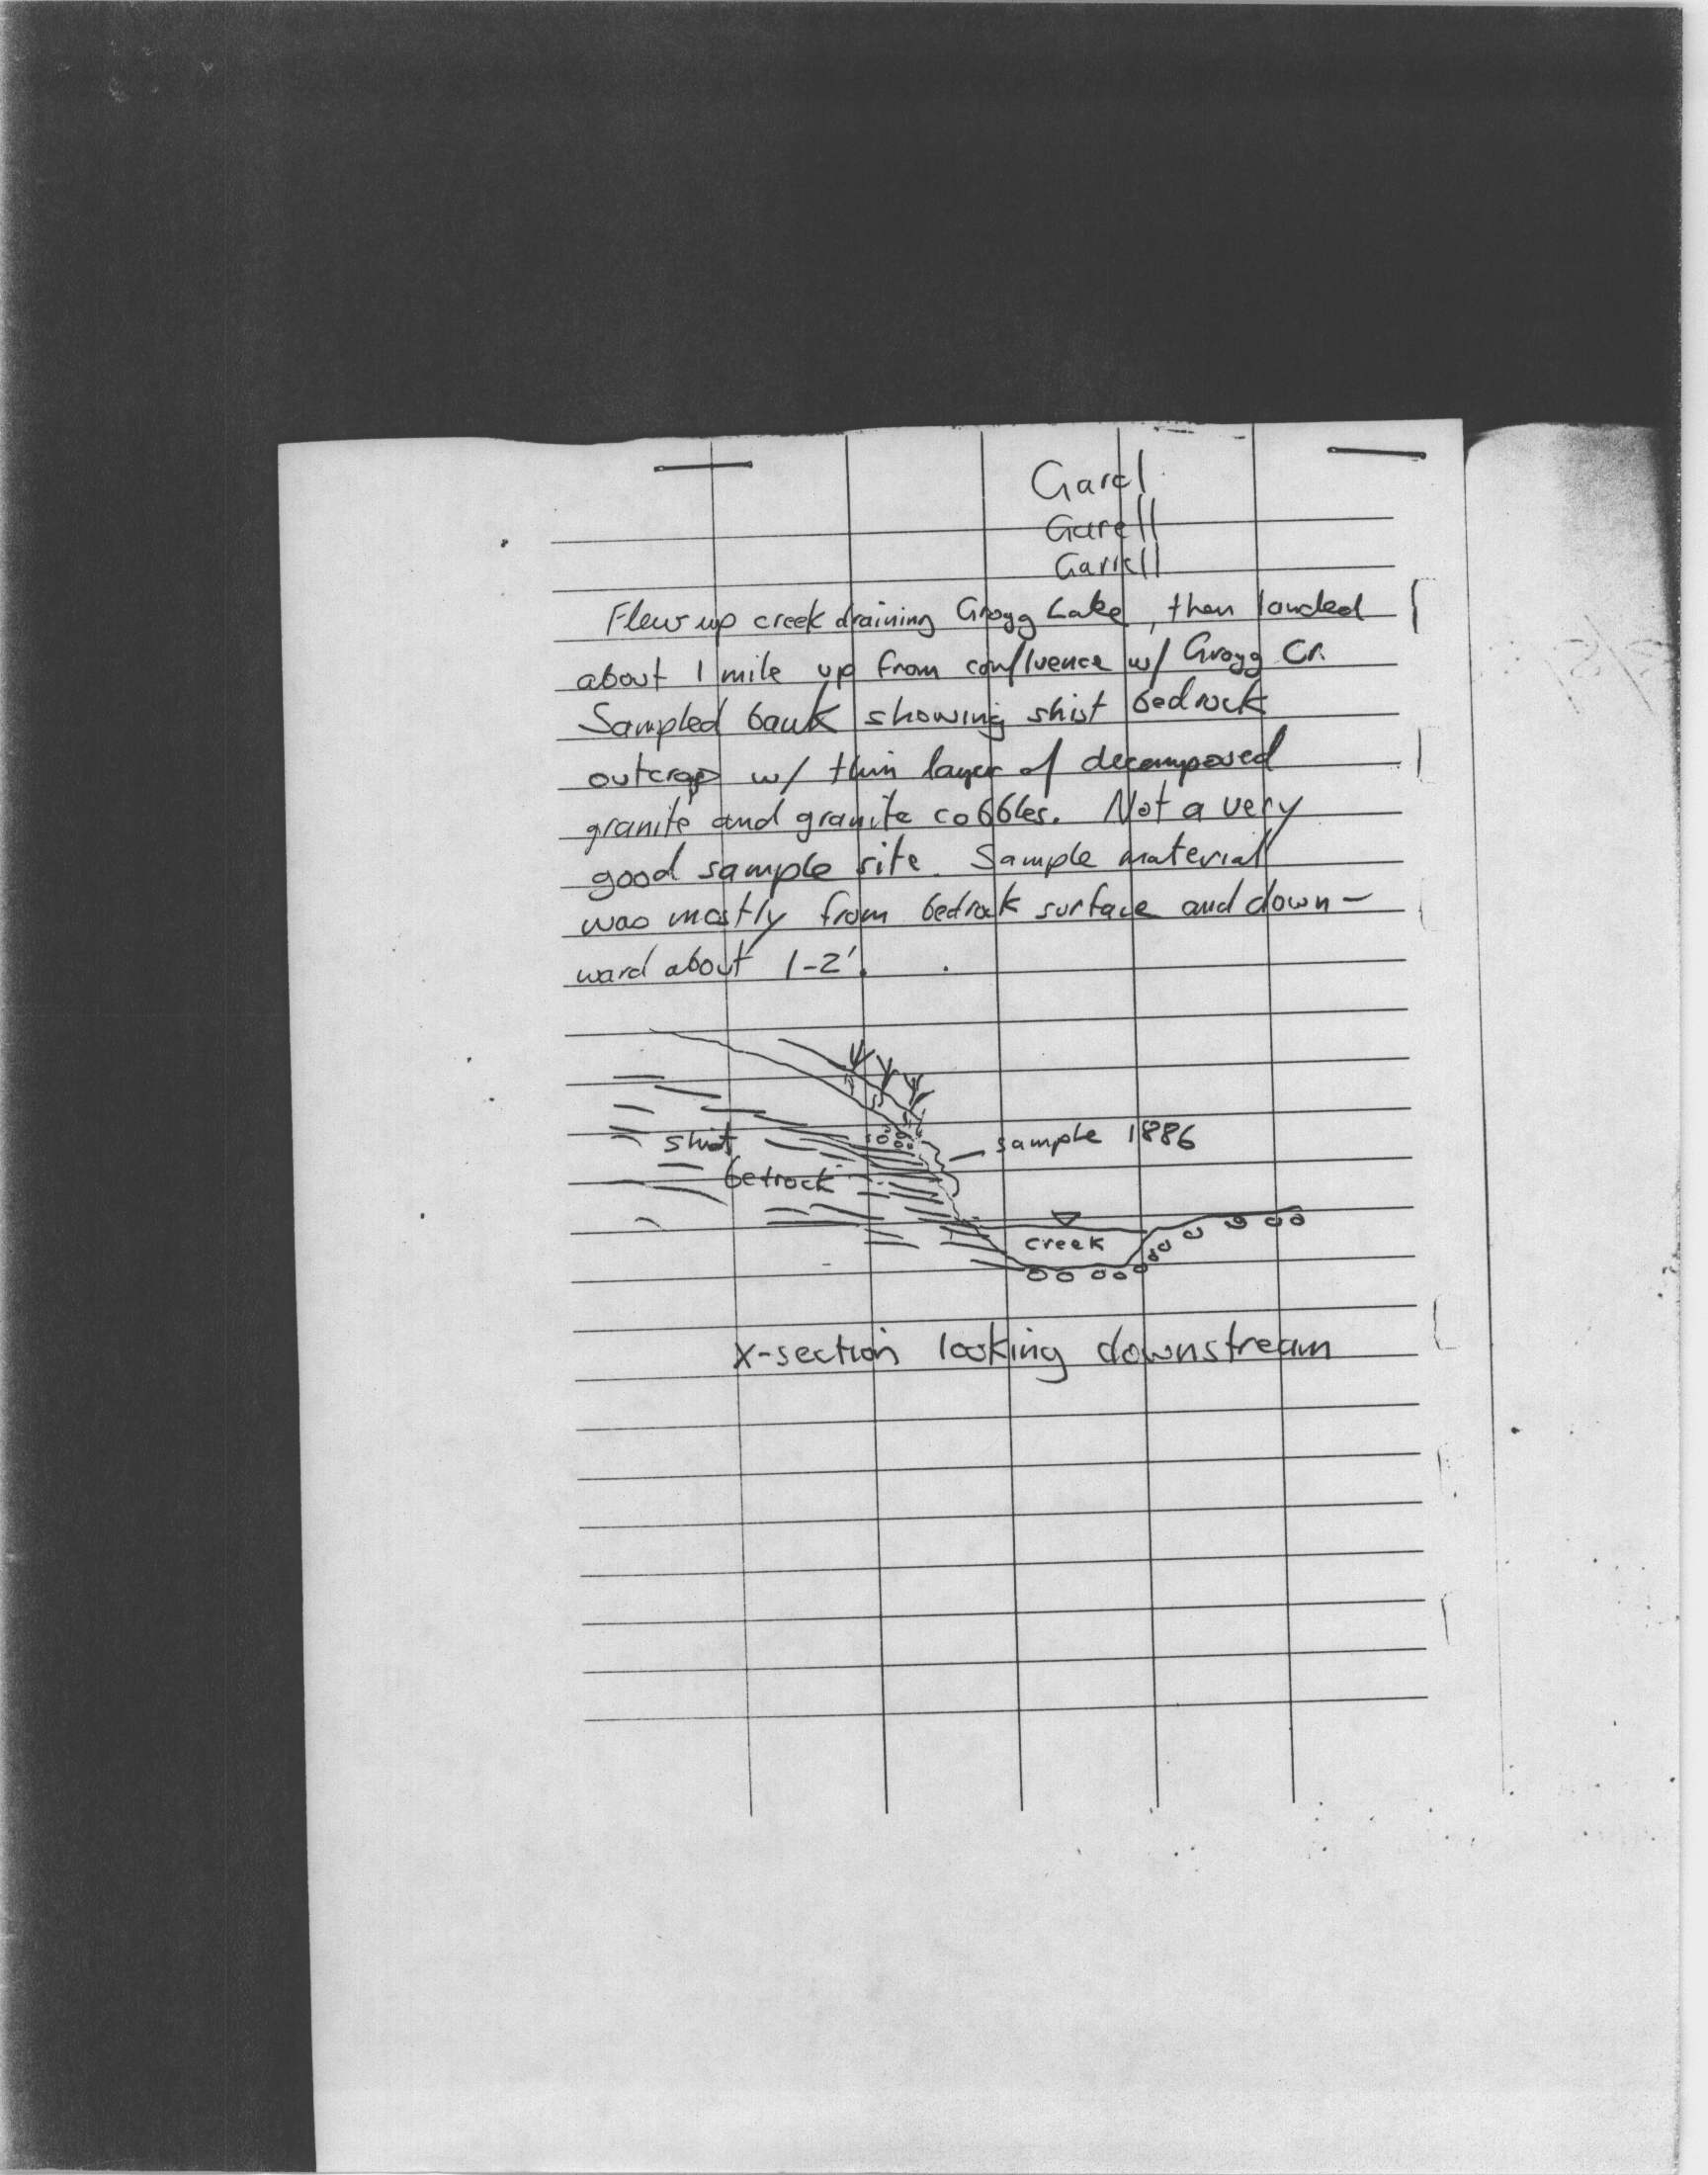 Garel
Garell
Garrell
Flew up creek draining Grogg Lake, then landed
about 1 mile up from confluence w/ Grogg Cr.
Sampled bank showing shist bedrock
outcrop w/ thin layer of decomposed
granite and granite cobbles. Not a very
good sample site. Sample material
was mostly from bedrock surface and down-
ward about 1-2'.
shist
bedrock
sample 1886
creek
x-section looking downstream